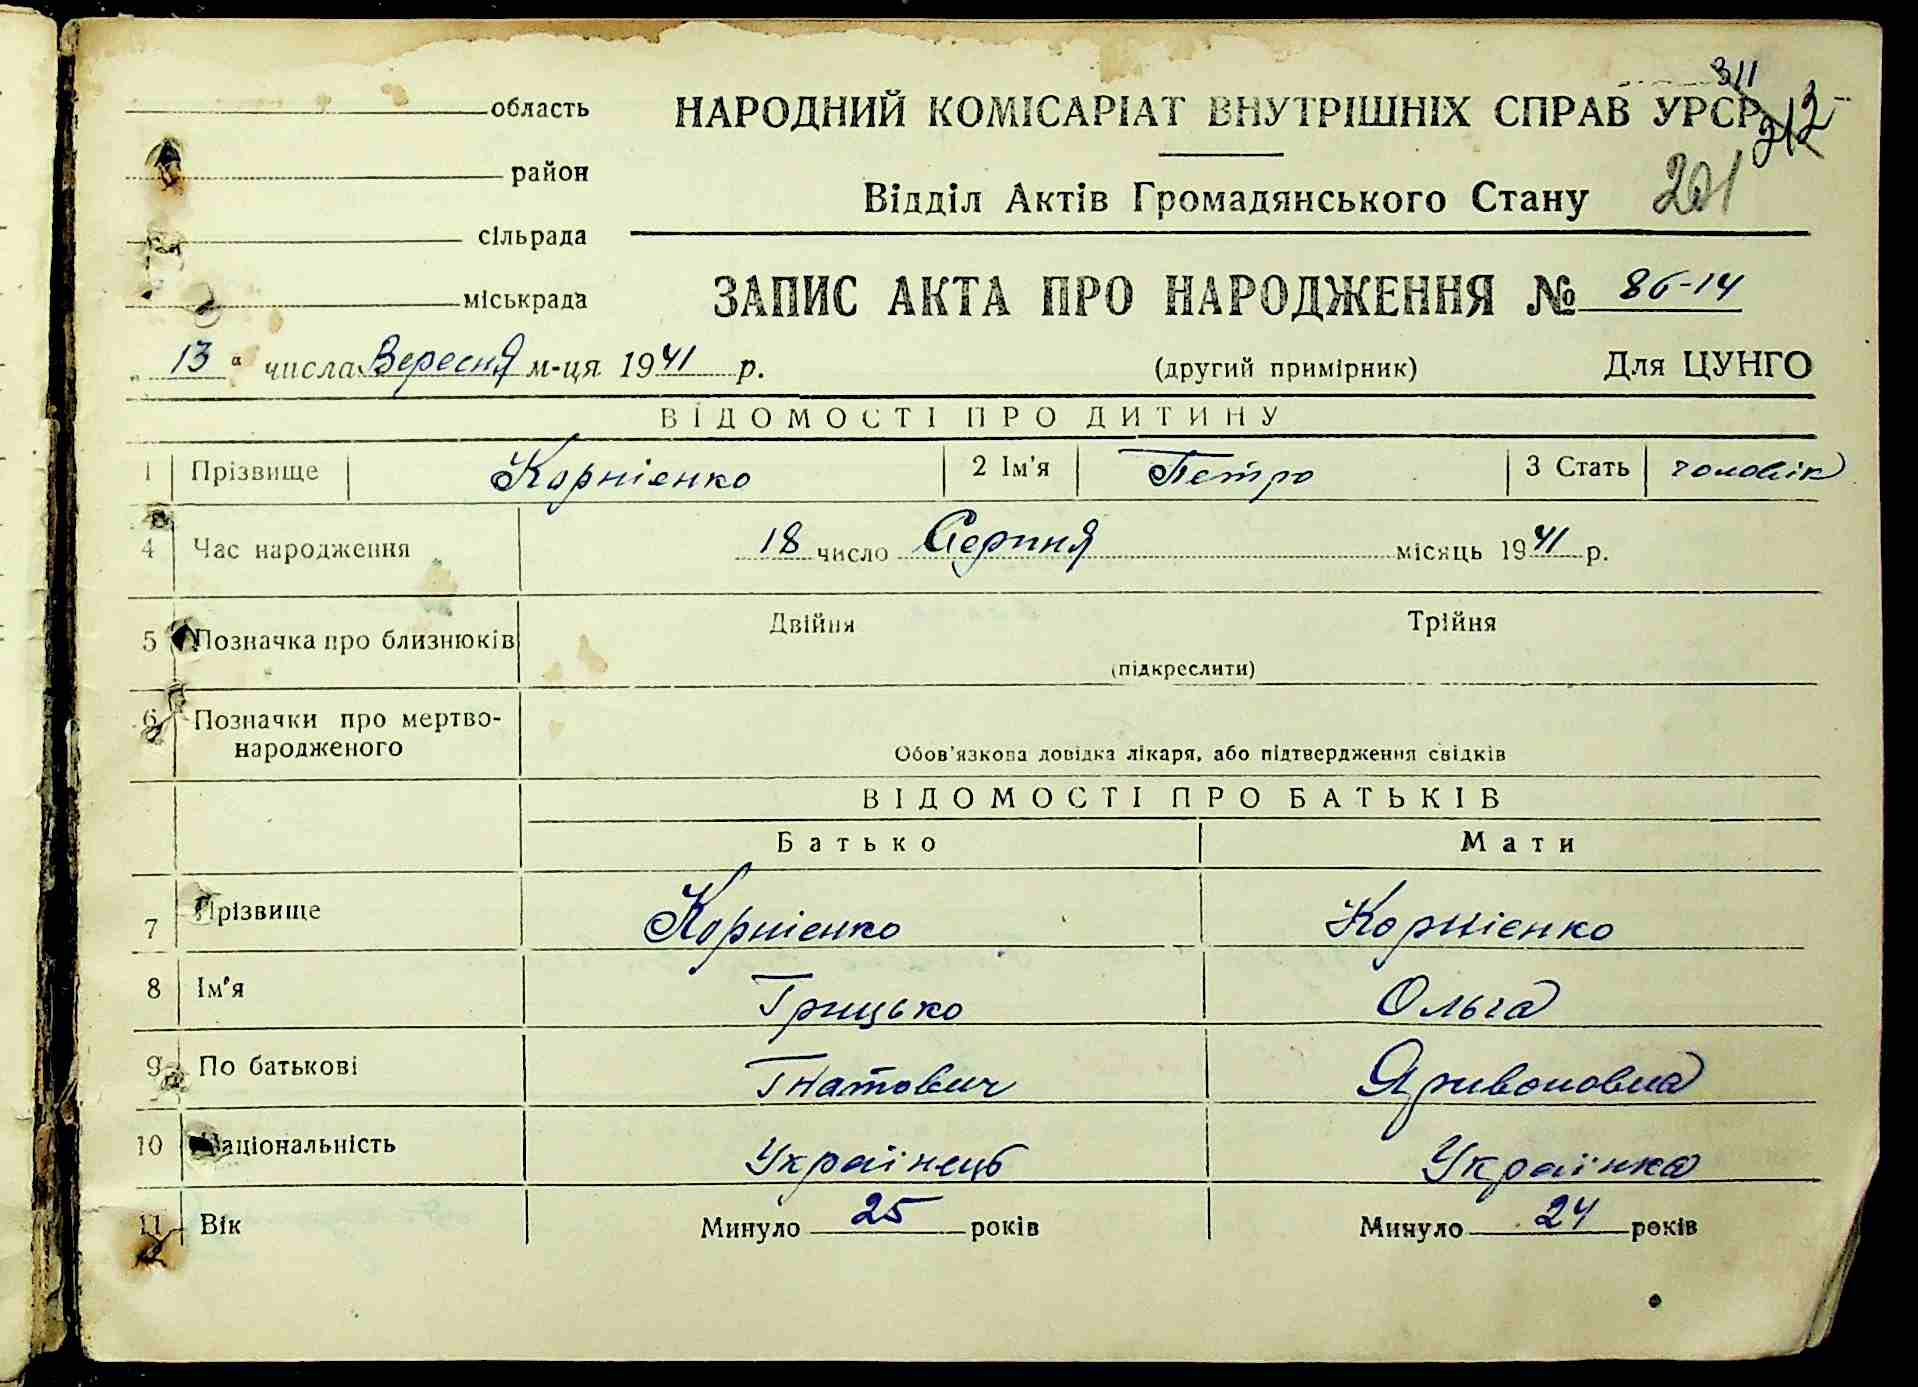 311
212
201
область
район
сільрада
міськрада
НАРОДНИЙ КОМІСАРІАТ ВНУТРІШНІХ СПРАВ УРСР
Відділ Актів Громадянського Стану
ЗАПИС АКТА ПРО НАРОДЖЕННЯ № 86-14
„13“ числа Вересня м-ця 1941 р. (другий примірник) Для ЦУНГО
ВІДОМОСТІ ПРО ДИТИНУ
1 Прізвище Корнієнко 2 Ім'я Петро 3 Стать чоловік
4 Час народження 18 число Серпня місяць 1941 р.
5 Позначка про близнюків Двійня Трійня
(підкреслити)
6 Позначки про мертво-
народженого
Обов'язкова довідка лікаря, або підтвердження свідків
ВІДОМОСТІ ПРО БАТЬКІВ
Батько Мати
7 Прізвище Корнієнко Корнієнко
8 Ім'я Грицько Ольга
9 По батькові Гнатович
10 Національність Українець Українка
11 Вік Минуло 25 років Минуло 24 років